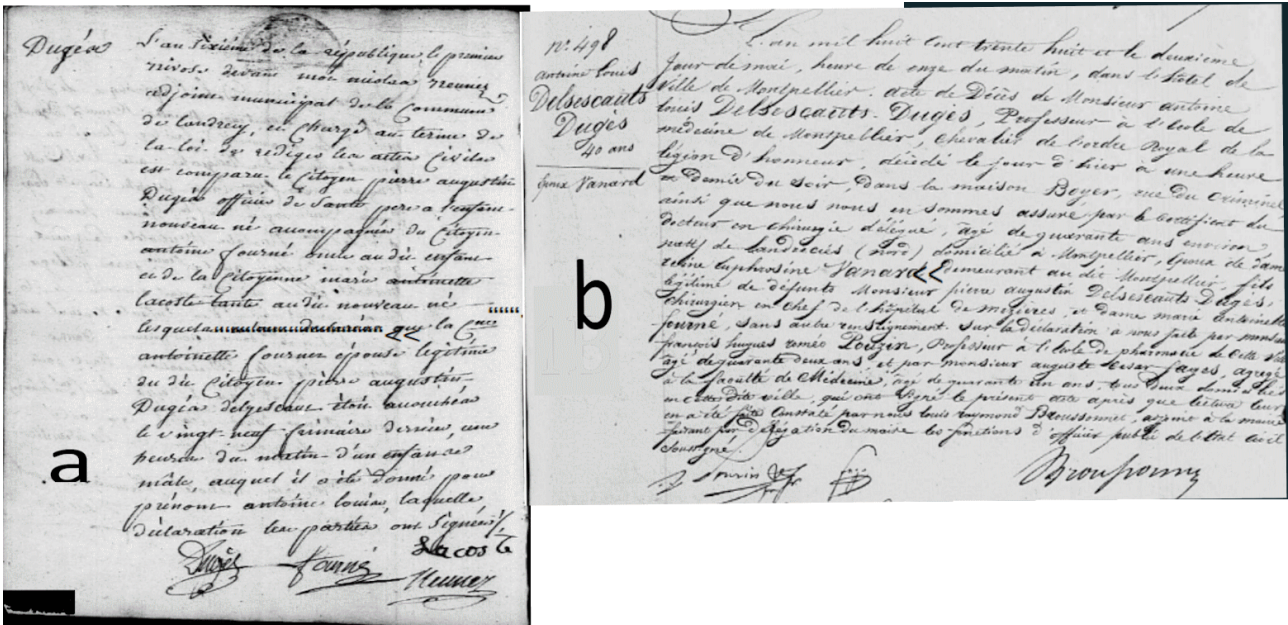 Dugés
L'an sixième de la république le premier
nivose devant moi nicolas meunier
adjoint municipal de la Commune
de Landrecy, en chargé au terme de
la loi de rediger les actes Civiles
est comparu le citoyen pierre augustin
Dugés officier de Santé pere a l'enfant
nouveau né accompagnés du Citoyen
antoine fourné oncle au dit enfant
et de la Citoyenne marie antoinette
lacoste tante au dit nouveau né
lesquels que la Cne
antoinette fournez épouse légitime
du dit Citoyen pierre augustin
Dugés delsescaut étoit accouchée
le vingt-neuf frimaire dernier, une
heure du matin d'un enfant
mâle, auquel il a été donné pour
prénom antoine louis, laquelle
déclaration les parties ont signées
Dugés fourné Lacoste
Meunier
a
n°. 498
antoine Louis
Delsescauts
Dugès
40 ans
Epoux Vanard
L'an mil huit cent trente huit et le deuxième
jour de mai, heure de onze du matin, dans l'hôtel de
ville de Montpellier. acte de Décès de Monsieur antoine
louis Delsescauts-Dugès, Professeur à l'école de
médecine de Montpellier, Chevalier de l'ordre Royal de la
légion d'honneur, décédé le jour d'hier à une heure
et demie du soir, dans la maison Boyer, rue du Criminel
ainsi que nous nous en sommes assuré par le certificat du
docteur en chirurgie délégué, agé de quarante ans environ
natif de Landrecies (nord) domicilié à Montpellier, Epoux de dame
reine Euphrosine Vanard << demeurant au dit Montpellier, fils
légitime de défunts Monsieur pierre augustin Delsescauts Dugès,
chirurgien en chef de l'hôpital de mézières, et dame marie antoinette
fourné, sans autre renseignement. Sur la déclaration à nous faite par monsieur
françois hugues roméo Pouzin, Professeur à l'école de pharmacie de cette ville
agé de quarante deux ans, et par monsieur auguste Cesar fages, agrégé
à la faculté de Médecine, agé de quarante un ans, tous deux domiciliés
en cette dite ville, qui ont signé le présent acte après que lecture leur
en a été faite Constaté par nous louis raymond Broussonnet, adjoint à la mairie
faisant par délégation du maire les fonctions d'officier public de l'état civil
soussigné.
Broussonnet
b